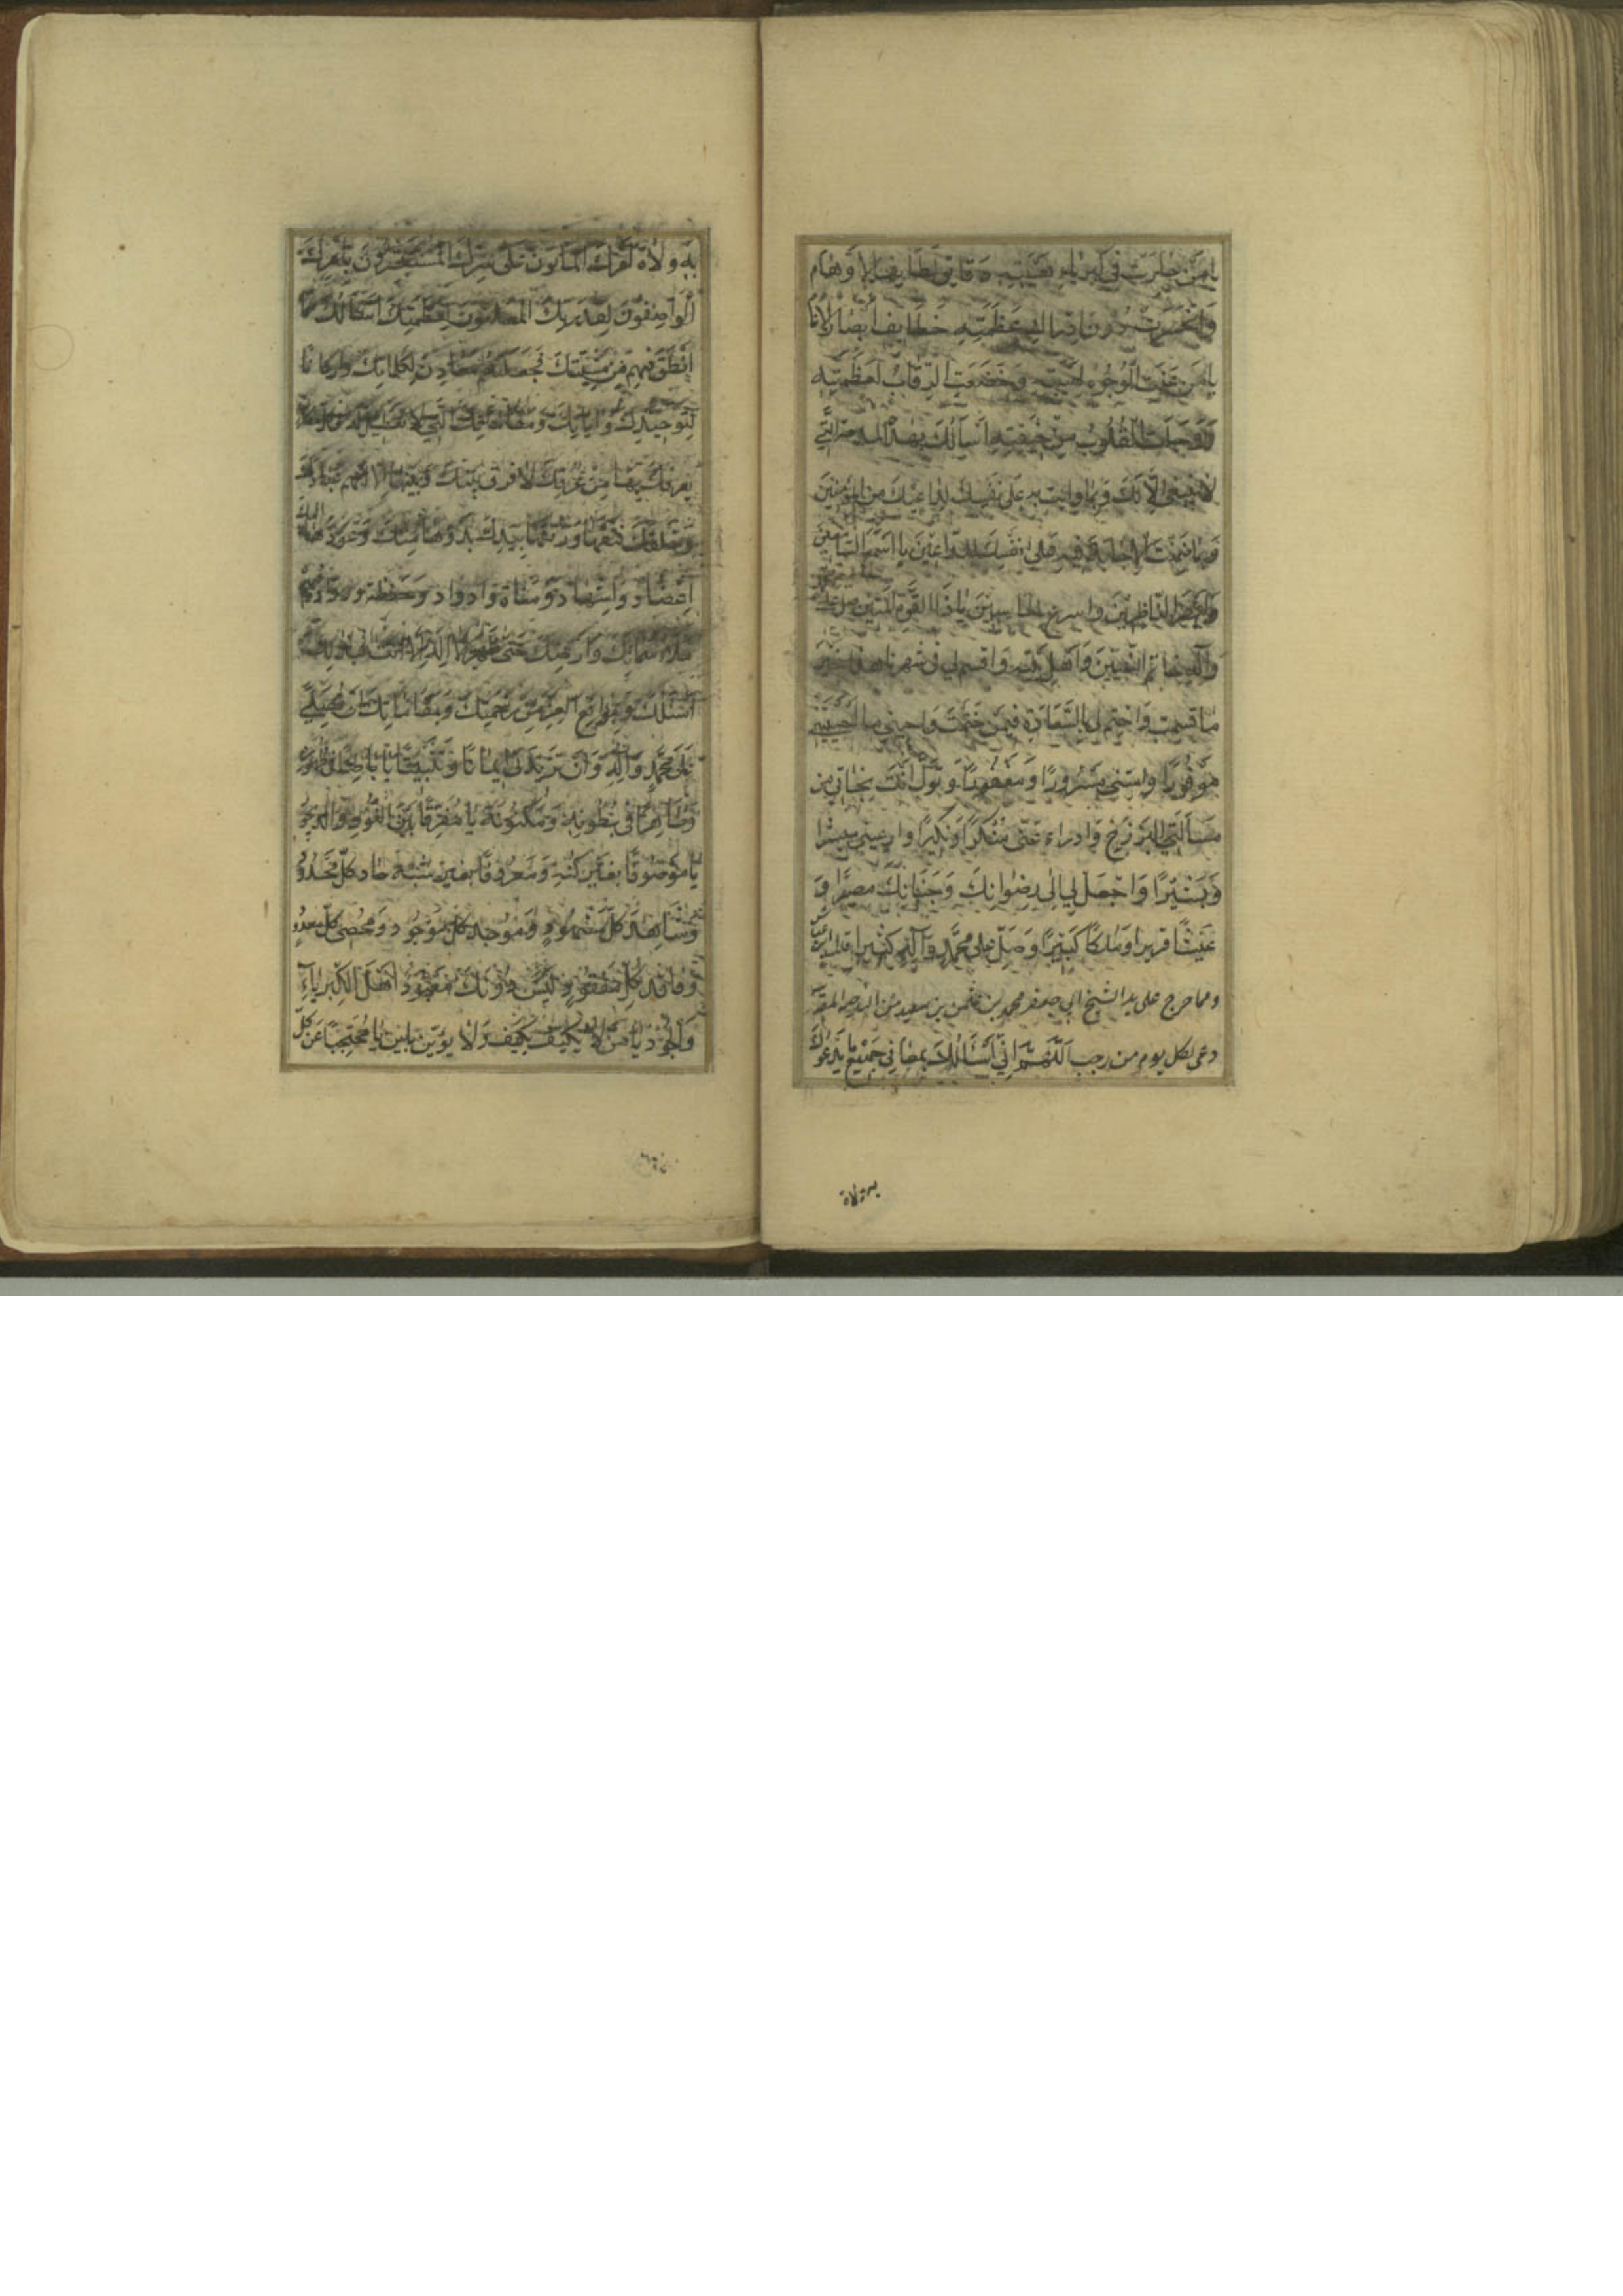 يا من حارت في كبرياء هيبته دقايق لطايف الاوهام
وانحسرت دون ادراك عظمته خطايف ابصار الانام
يا من عنت الوجوه لهيبته وخضعت الرقاب لعظمته
ووجلت القلوب من خيفته اسألك بهذه المدحة التي
لا تنبغي الا لك وبما وأيت به على نفسك لداعيك من المؤمنين
وبما ضمنت الاجابة فيه على نفسك للداعين يا اسمع السامعين
وابصر الناظرين واسرع الحاسبين يا ذا القوة المتين صل على محمد
وآله خاتم النبيين واهل بيته واقسم لي في شهرنا هذا خير
ما قسمت واختم لي بالسعادة فيمن ختمت واحيني ما احييتني
موفورا وامتني مسرورا ومغفورا وتول انت نجاتي من
مسألة البرزخ وادرء عني منكرا ونكيرا وار عيني مبشرا
وبشيرا واجعل لي الى رضوانك وجنانك مصيرا و
عيشا قريرا وملكا كبيرا وصل على محمد وآله كثيرا
ومما خرج على يد الشيخ ابي جعفر محمد بن عثمن بن سعيد من الناحية المقدسة
دعى لكل يوم من رجب اللهم اني اسألك بمعاني جميع ما يدعوك
به ولاة
به ولاة امرك المأمونون على سرك المستبشرون بامرك
الواصفون لقدرتك المعلنون لعظمتك اسألك بما
انطق فيهم من مشيتك فجعلتهم معادن لكلماتك واركانا
لتوحيدك وآياتك ومقاماتك التي لا تعطيل لها في كل مكان
يعرفك بها من عرفك لا فرق بينك وبينها الا انهم عبادك
وخلقك فتقها ورتقها بيدك بدؤها منك وعودها اليك
اعضاد واشهاد ومناة واذواد وحفظة ورواد فبهم
ملأت سماءك وارضك حتى ظهر ان لا اله الا انت فبذلك
اسئلك وبمواقع العز من رحمتك وبمقاماتك ان تصلي
على محمد وآله وان تزيدني ايمانا وتثبيتا يا باطنا في ظهوره
وظاهرا في بطونه ومكنونه يا مفرقا بين النور والديجور
يا موصوفا بغير كنه ومعروفا بغير شبه حاد كل محدود
وشاهد كل مشهود وموجد كل موجود ومحصي كل معدود
وفاقد كل مفقود ليس دونك من معبود اهل الكبرياء
والجود يا من لا يكيف بكيف ولا يؤين باين يا محتجبا عن كل